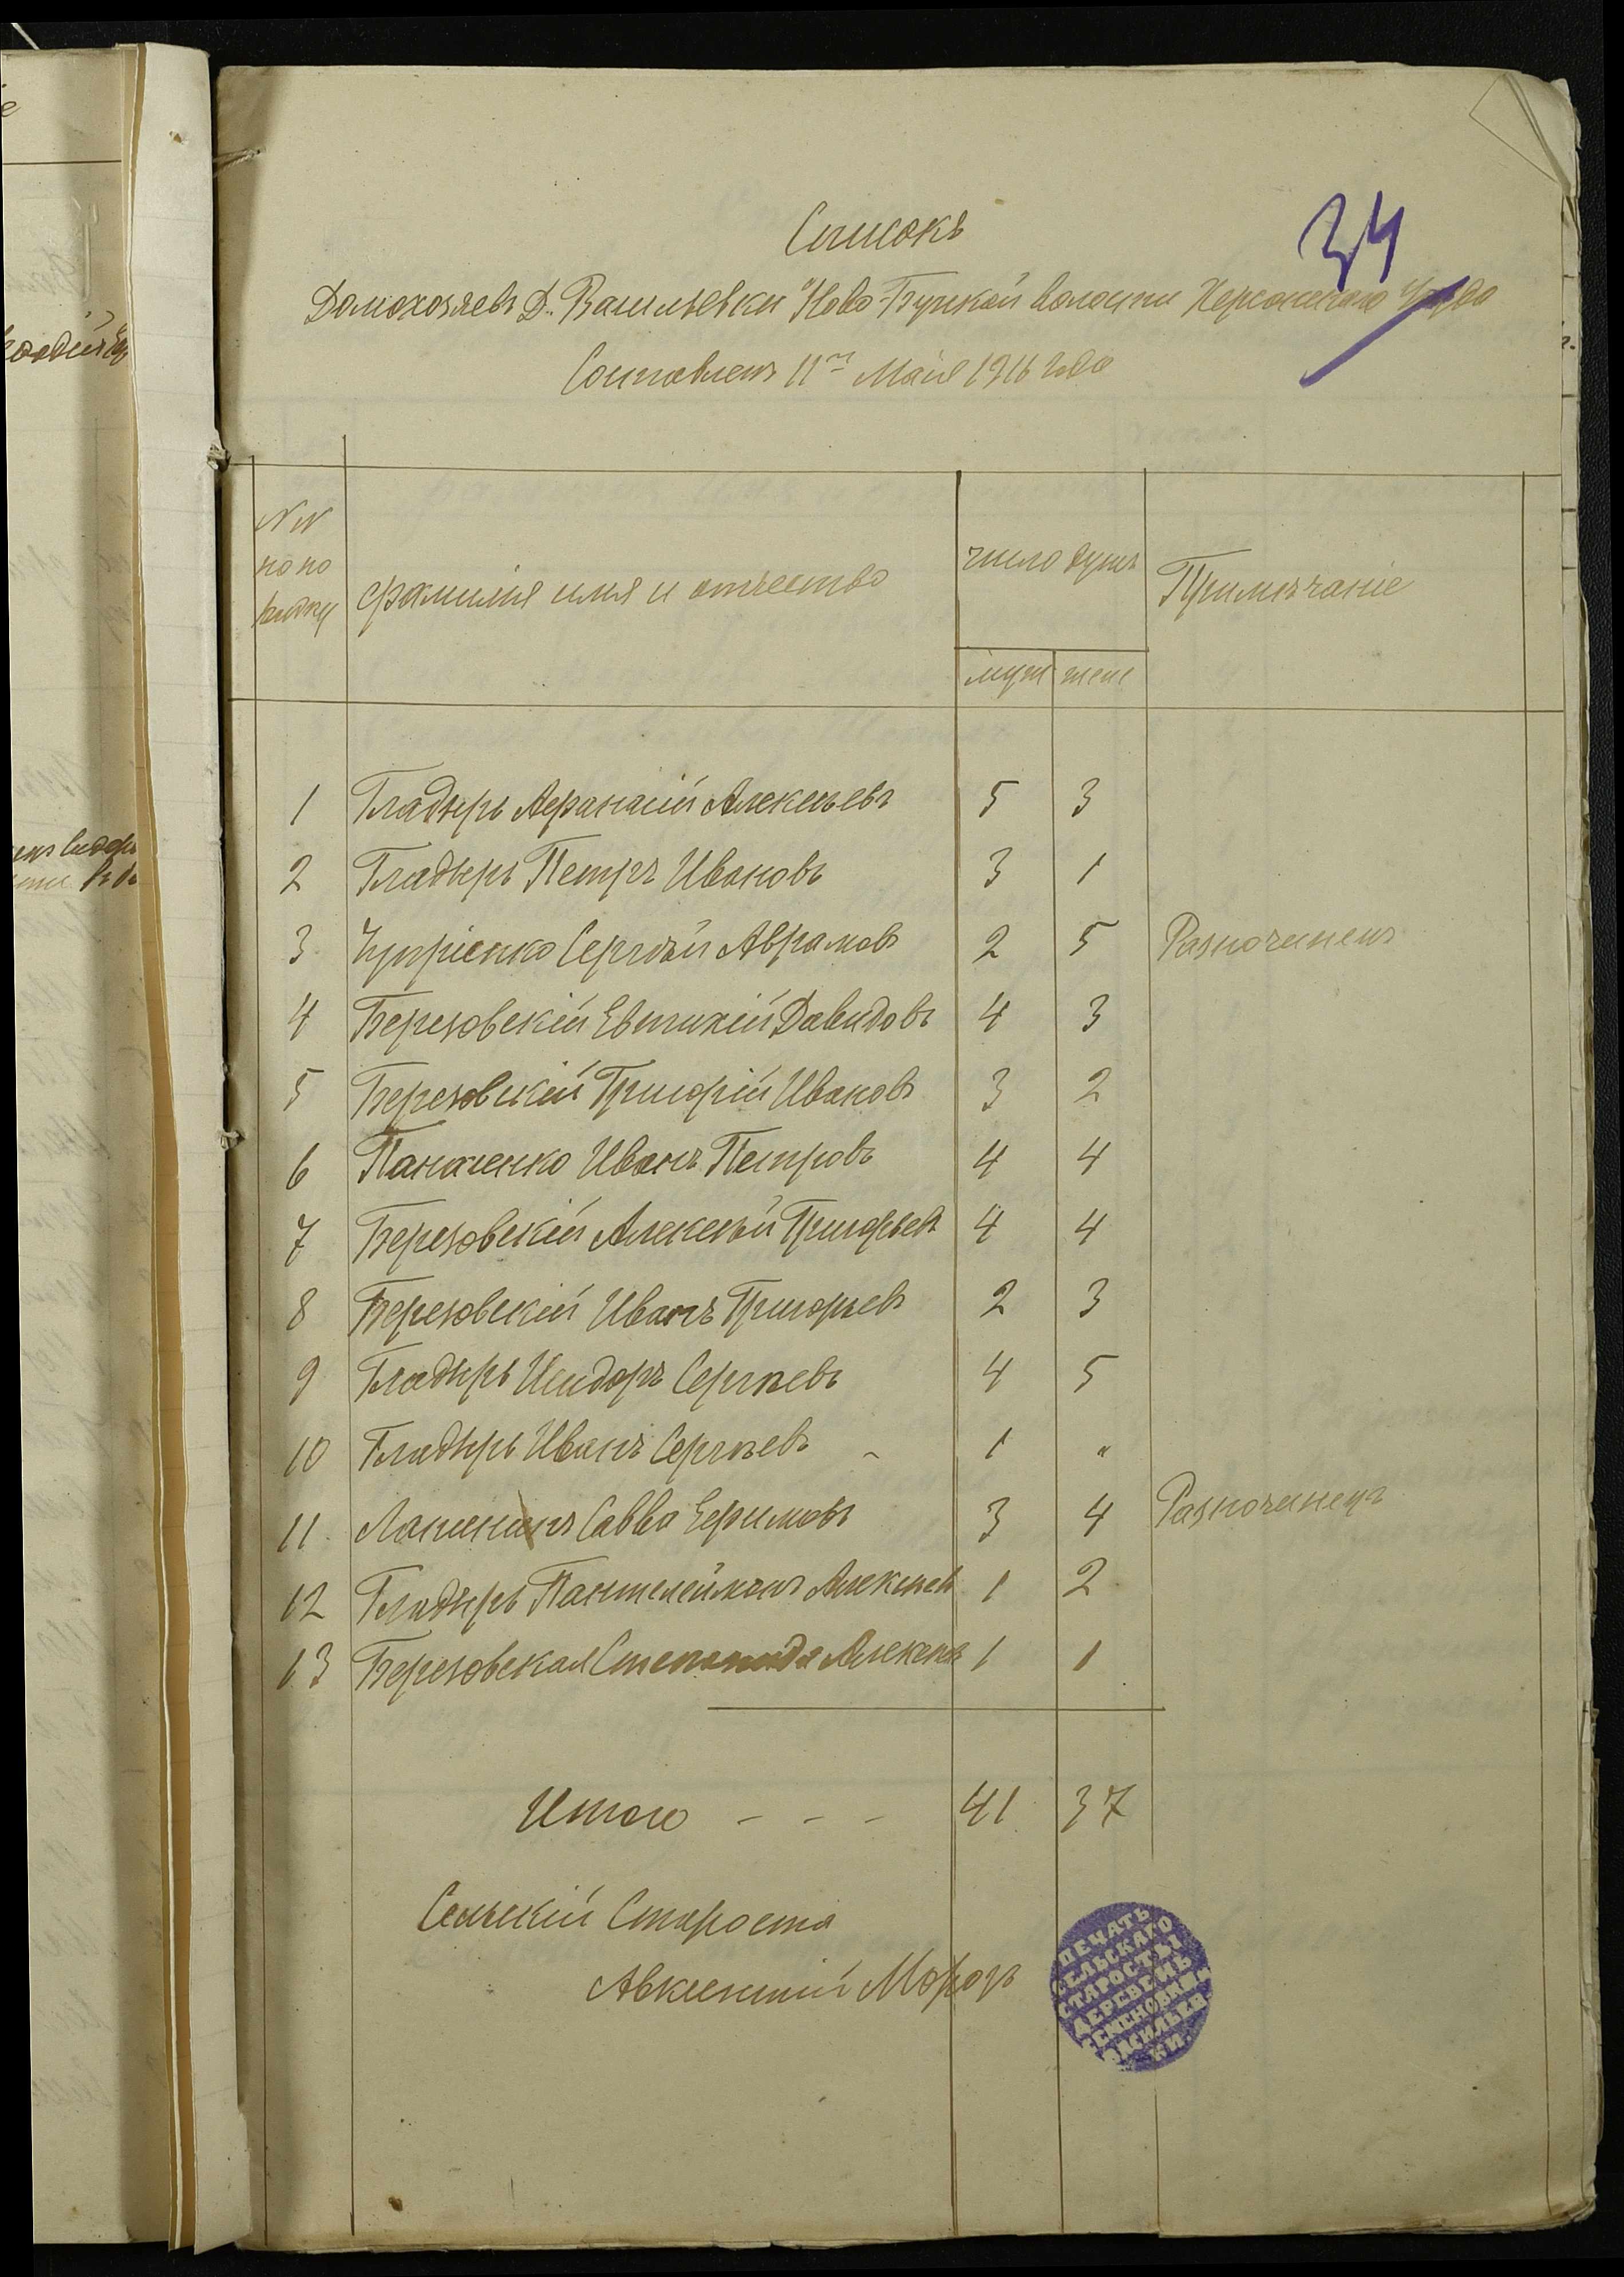 34
Списокъ
Домохозяевъ Д. Васильевки Ново-Бугской волости Херсонскаго уѣзда
Составленъ 11го Мая 1916 года
NN
по по
рядку
фамилія имя и отчество
число душъ
Примѣчаніе
муж жен
1 Гладырь Афанасій Алексѣевъ 5 3
2 Гладырь Петръ Ивановъ 3 1
3 Сергѣй Аврамовъ 2 5 Разночинецъ
4 Березовскій Евтихій Давидовъ 4 3
5 Березовскій Григорій Ивановъ 3 2
6 Панасенко Иванъ Петровъ 4 4
7 Березовскій Алексѣй Григорьевъ 4 4
8 Березовскій Иванъ Григорьевъ 2 3
9 Гладырь Исидоръ Сергѣевъ 4 5
10 Гладырь Иванъ Сергѣевъ - 1 "
11 Савва Ефимовъ 3 4 Разночинецъ
12 Гладырь Пантелеймонъ Алексѣевъ 1 2
13 Березовская Степанида Алексѣев 1 1
Итого - - - 41 37
Сельскій Староста
Авксентій Морозъ
ПЕЧАТЬ
СЕЛЬСКАГО
СТАРОСТЫ
ДЕРЕВЕНЬ
СЕМЕНОВКИ
ВАСИЛЬЕВ
КИ.